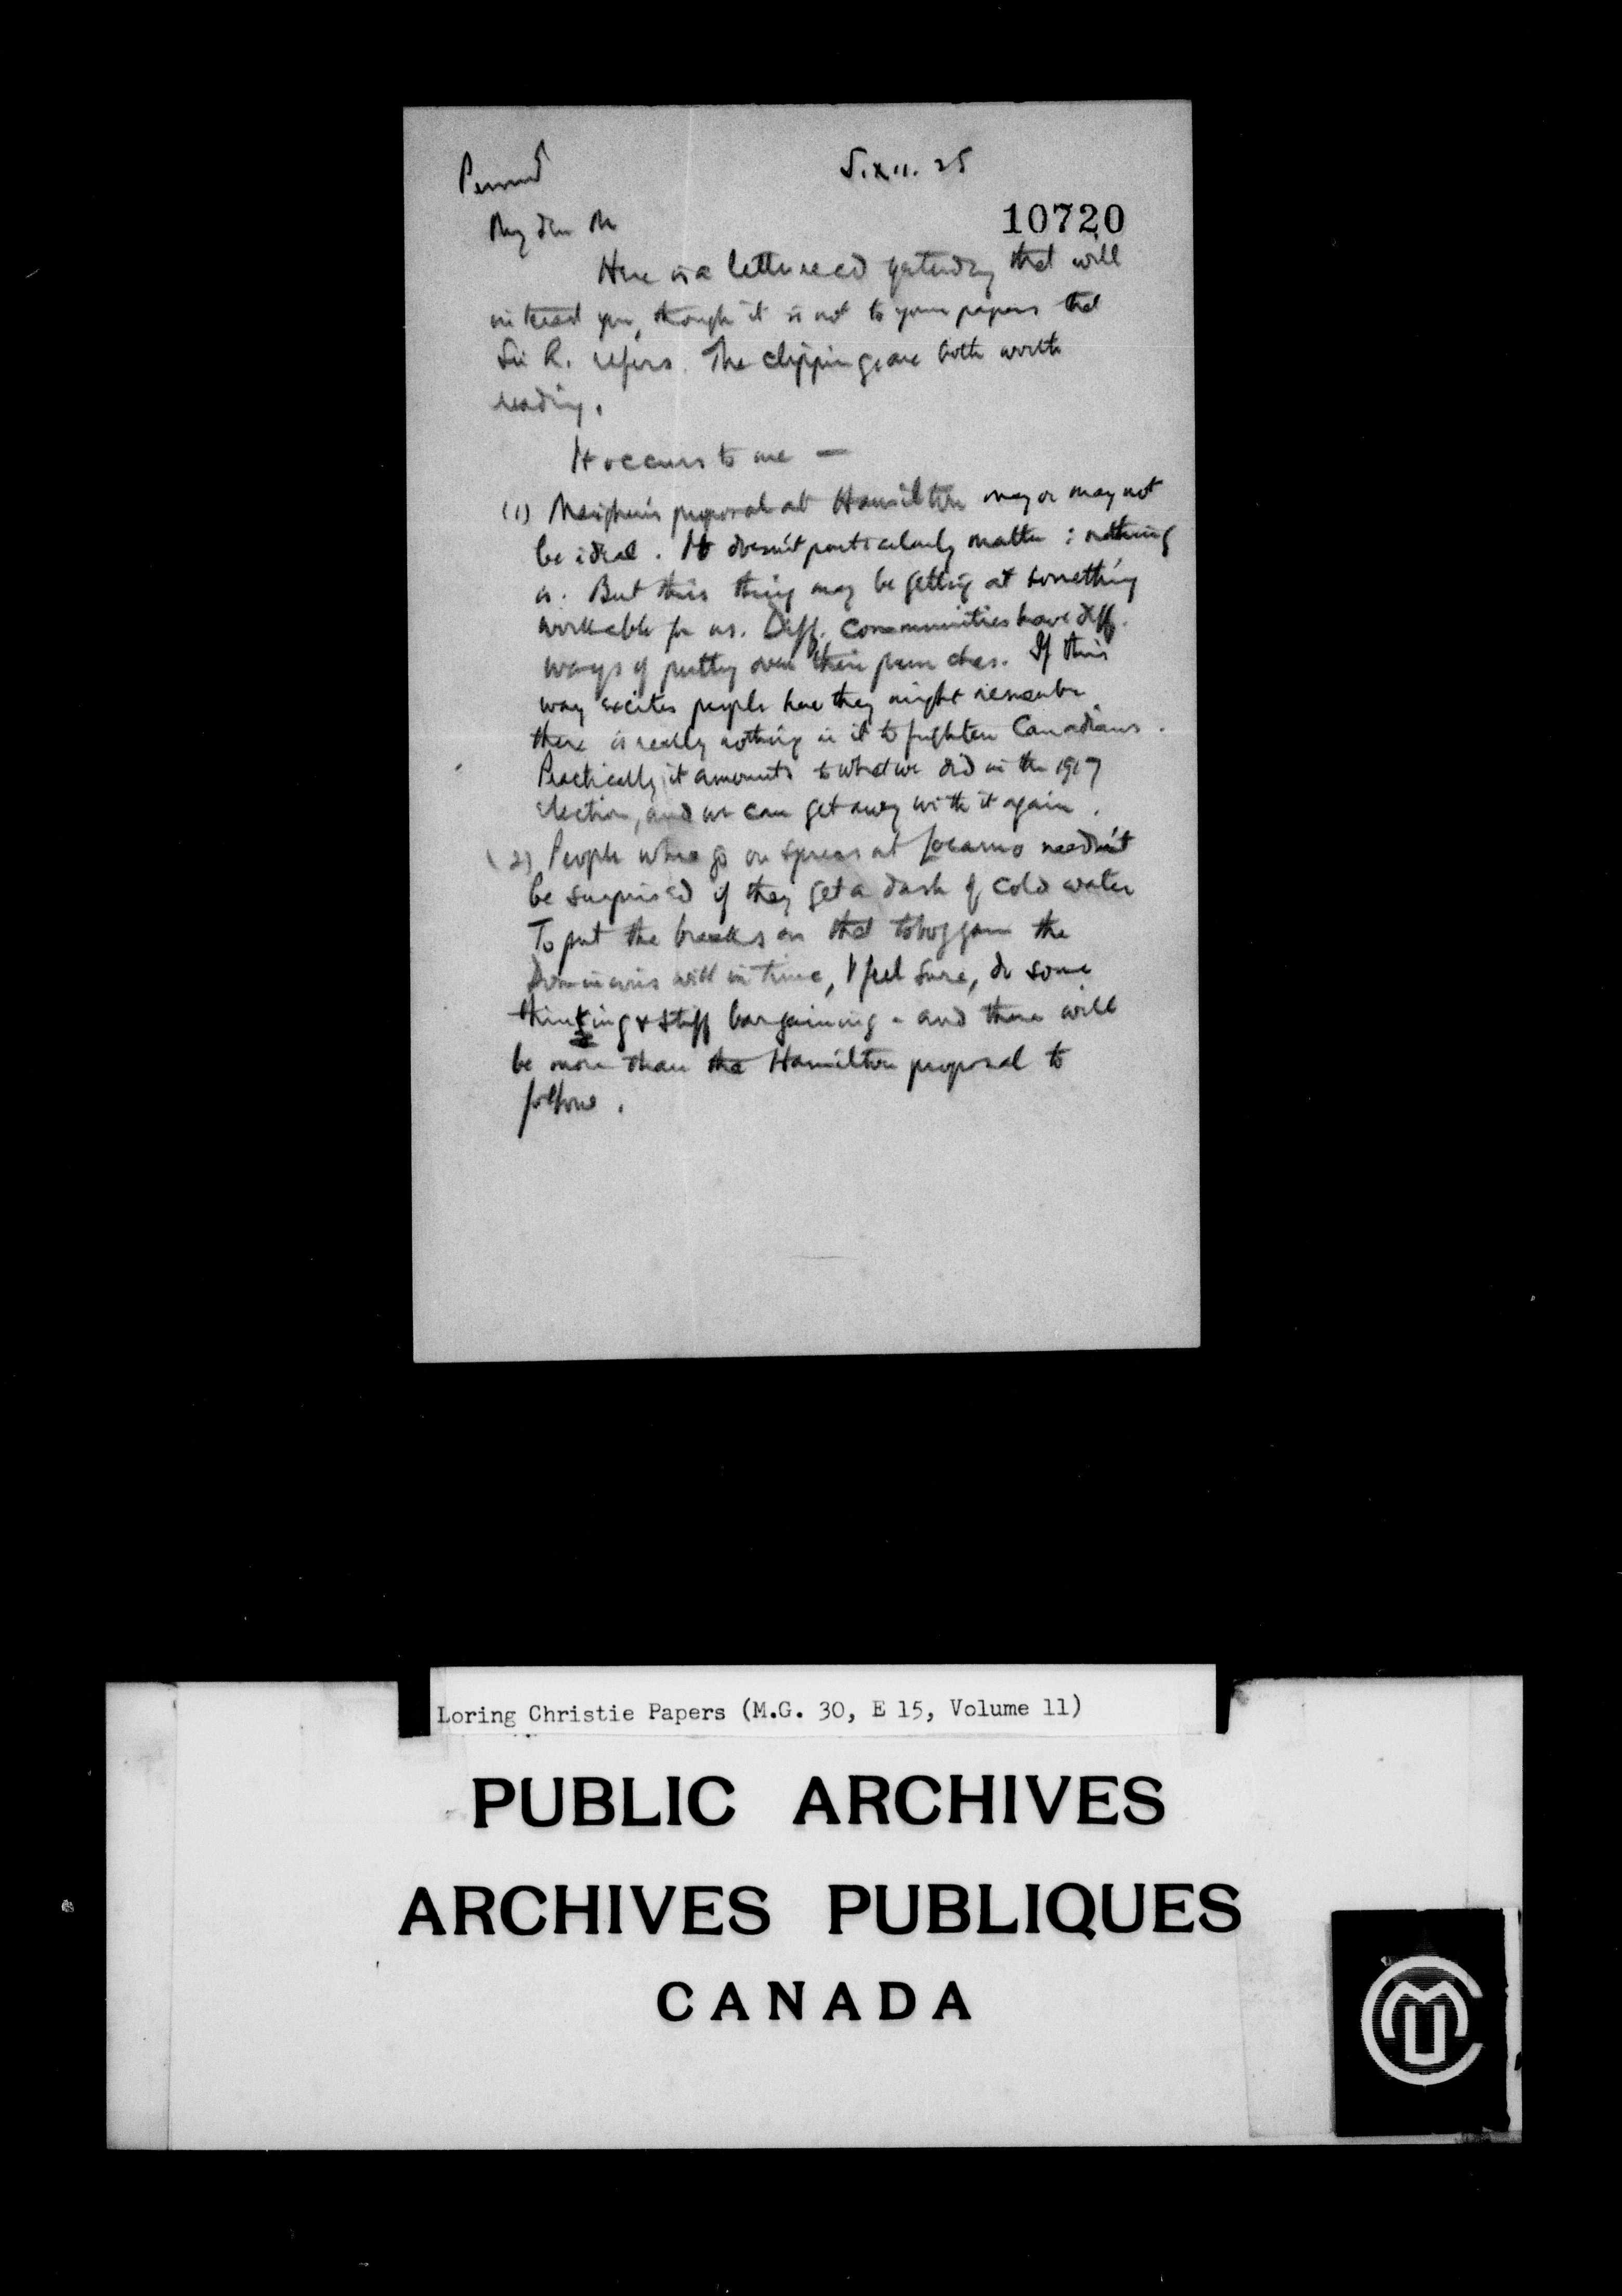 Personal
5.xii.25
10720
My dear M
Here is a letter recd yesterday that will
interest you, though it is not to your papers that
Sir R. refers. The clippings are both worth
reading.
It occurs to me —
(1) Meighen's proposal at Hamilton may or may not
be ideal. It doesn't particularly matter: nothing
is. But this thing may be getting at something
workable for us. Diff. communities have diff.
ways of putting over their punches. If this
way excites people here they might remember
there is really nothing in it to frighten Canadians.
Practically it amounts to what we did in the 1917
election, and we can get away with it again.
(2) People who go on sprees at Locarno needn't
be surprised if they get a dash of cold water
To put the breaks on that toboggan the
Dominions will in time, I feel sure, do some
thinking & stiff bargaining - and there will
be more than the Hamilton proposal to
follow.
Loring Christie Papers (M.G. 30, E 15, Volume 11)
PUBLIC ARCHIVES
ARCHIVES PUBLIQUES
CANADA